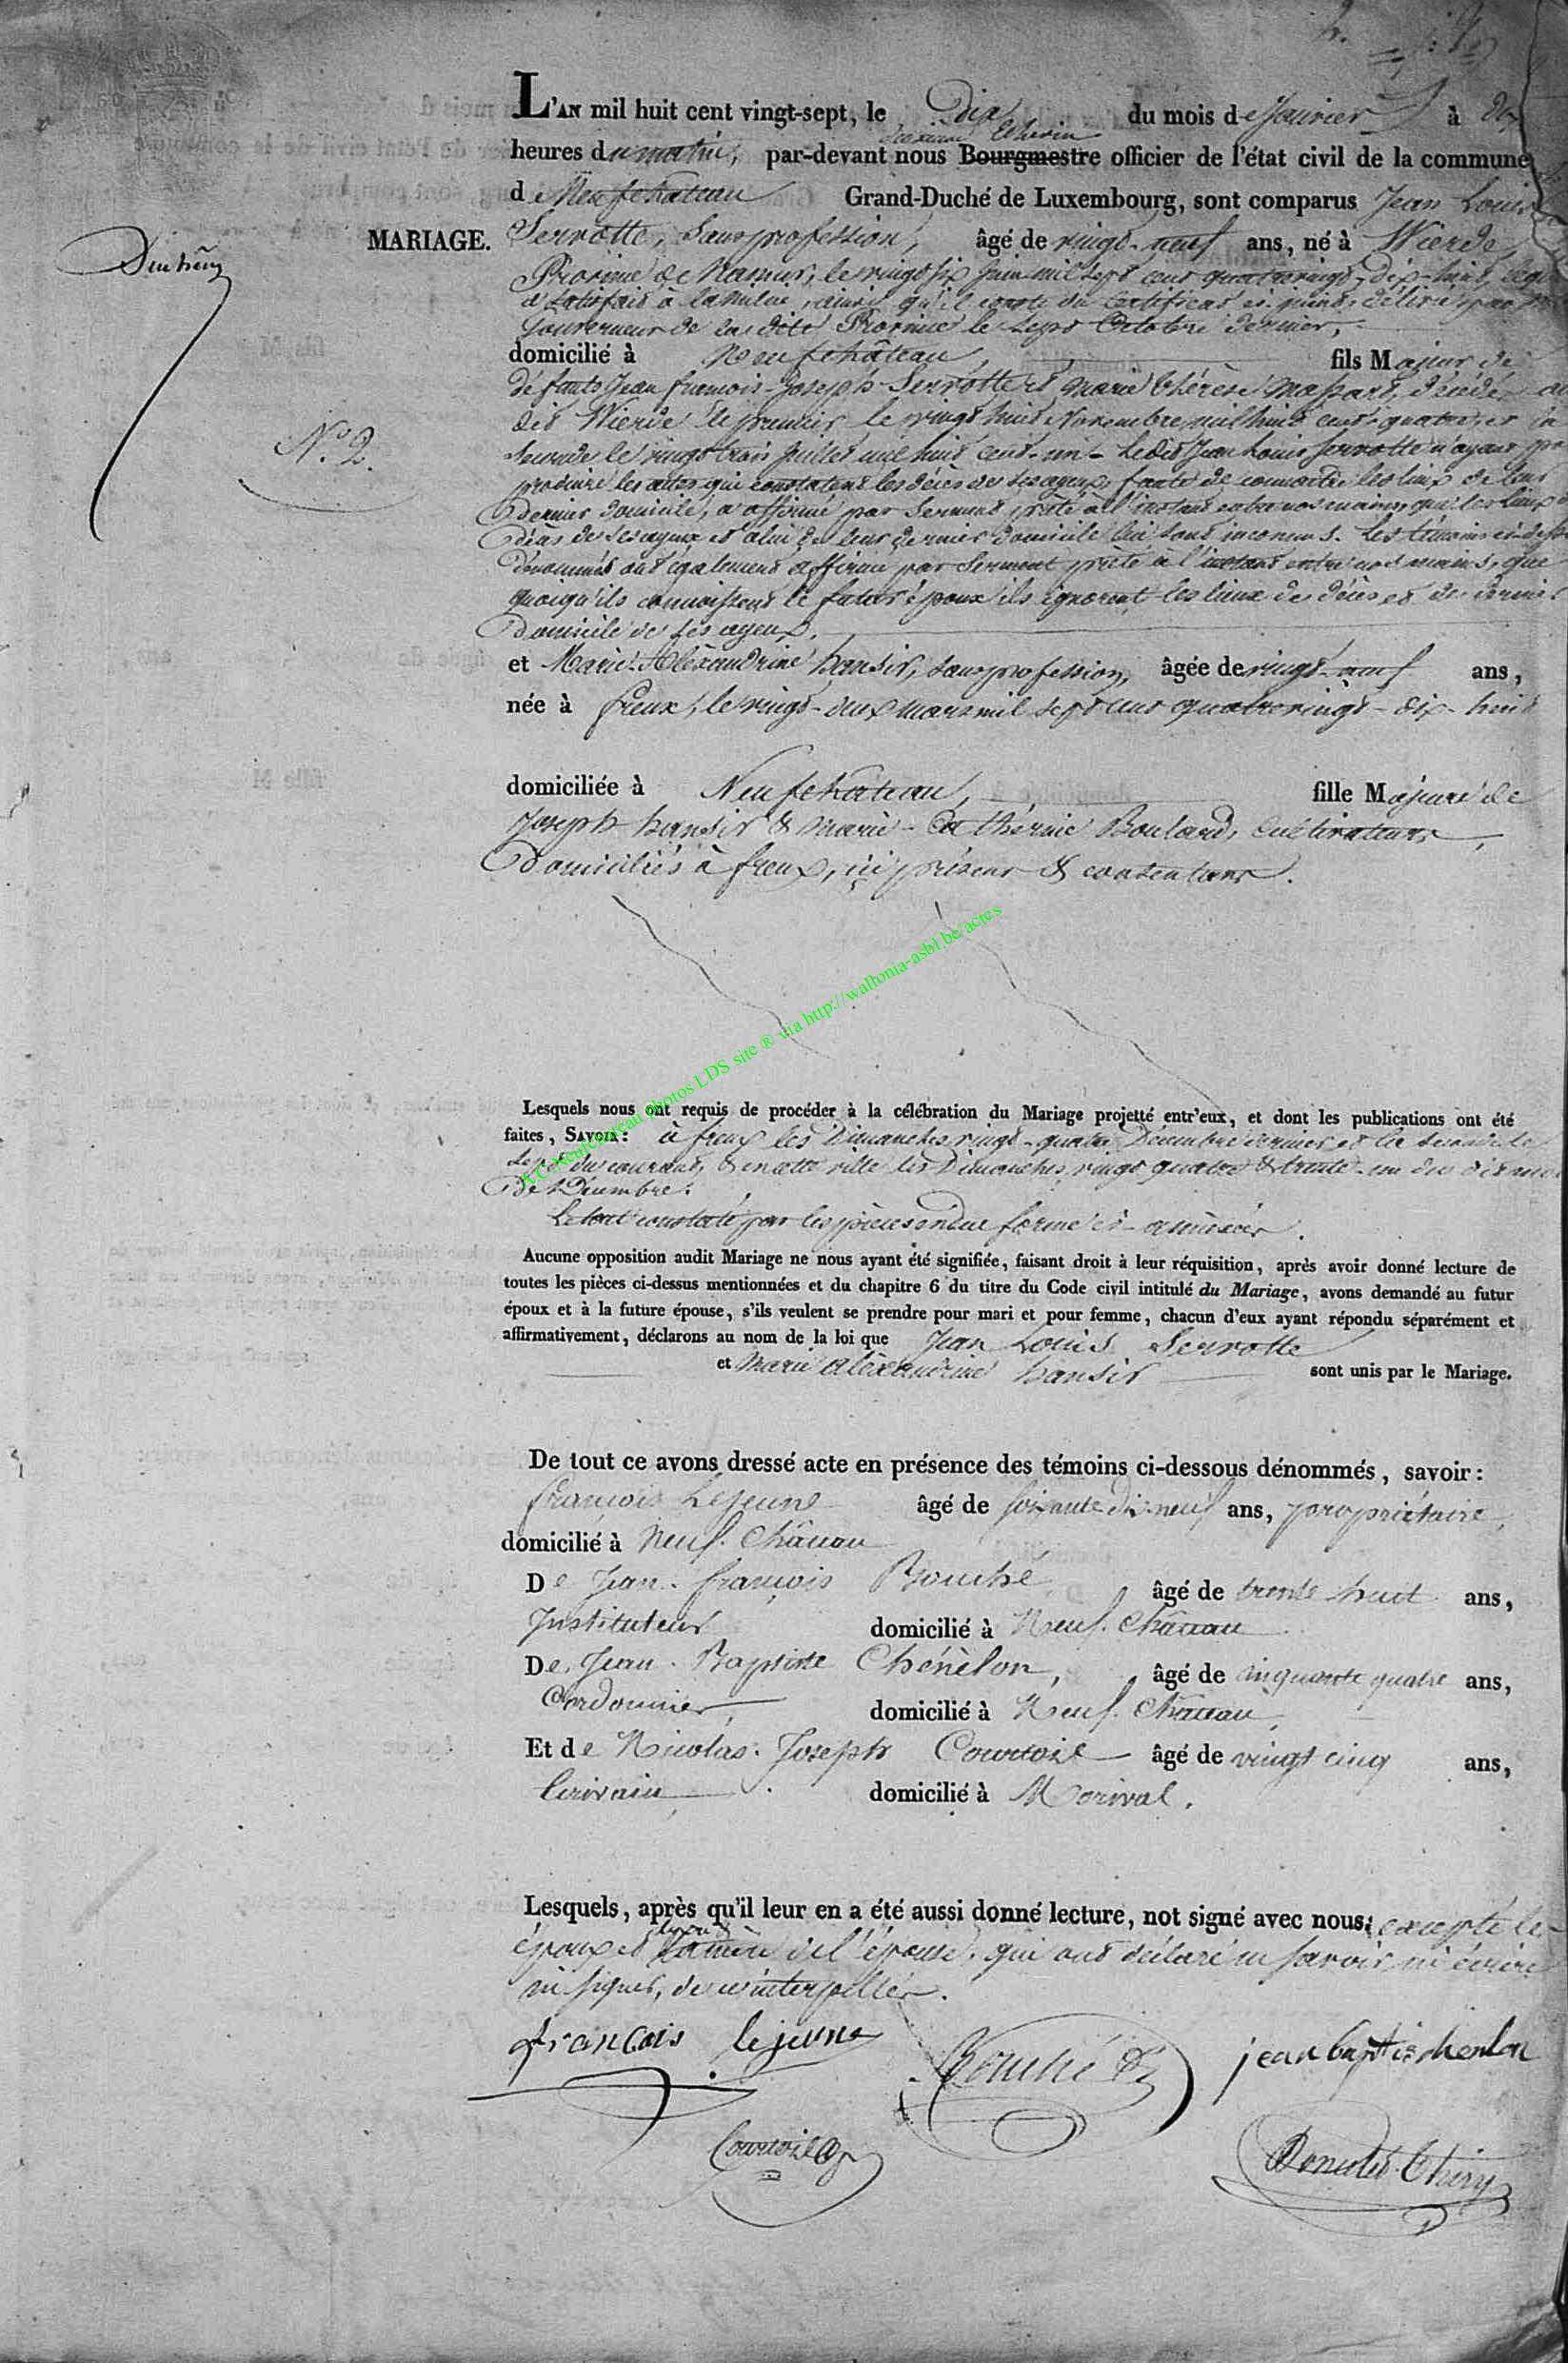 L'AN mil huit cent vingt-sept, le Dix du mois de Janvier à dix
Echevin
heures du matin, par-devant nous Bourgmestre officier de l'état civil de la commune
de Neufchateau Grand-Duché de Luxembourg, sont comparus Jean Louis
MARIAGE. Serrotte, Sans profession, âgé de vingt-neuf ans, né à Wierde
Province de Namur, le vingt six Juin mil sept cent quatrevingt-dix-huit, lequel
a satisfait à la milice, ainsi qu'il conste du certificat ci-joint, délivré par
Gouverneur de la dite Province le sept Octobre dernier,
domicilié à Neufchâteau, fils Majeur de
N.o 2.
défunts Jean francois-Joseph Serrotte et Marie thérèse Massart, décédés au
dit Wierde le premier le vingt huit Novembre mil huit cent quatre, et la
seconde le vingt trois Juillet mil huit cent-un - Ledit Jean Louis Serrotte n'ayant pu
produire les actes qui constatent les décès de ses ayeux, faute de connoitre les lieux de leur
dernier domicile, a affirmé par serment prêté à l'instant entre nos mains, que les lieux
décès de ses ayeux et celui de leur dernier domicile lui sont inconnus. Les témoins ci-dessous
dénommés ont également affirmé par Serment prêté à l'instant entre nos mains, que
quoiqu'ils connoissent le futur époux ils ignorent les lieux de décès et de dernier
domicile de ses ayeux.
et Marie-Aléxandrine hansir, sans profession, âgée de vingt-neuf ans,
née à freux, le vingt-deux mars mil sept cent quatrevingt-dix-huit
domiciliée à Neufchateau, fille Majeure de
Joseph hansir & Marie-Cathérine Boulard, Cultivateurs,
Domiciliés à freux, ici présent & consentans.
A.C. Neufchateau photos LDS site ® via http://wallonia-asbl.be/actes
Lesquels nous ont requis de procéder à la célébration du Mariage projetté entr'eux, et dont les publications ont été
faites, SAVOIR: à freux les Dimanches vingt-quatre Décembre dernier et la seconde le
sept du courant, & en cette ville les Dimanches vingt quatre & trente-un du dit mois
de Décembre.
Le tout constaté par les pièces en due forme ci-annexées.
Aucune opposition audit Mariage ne nous ayant été signifiée, faisant droit à leur réquisition, après avoir donné lecture de
toutes les pièces ci-dessus mentionnées et du chapitre 6 du titre du Code civil intitulé du Mariage, avons demandé au futur
époux et à la future épouse, s'ils veulent se prendre pour mari et pour femme, chacun d'eux ayant répondu séparément et
affirmativement, déclarons au nom de la loi que Jean Louis Serrotte
et Marie aléxandrine hansir sont unis par le Mariage.
De tout ce avons dressé acte en présence des témoins ci-dessous dénommés, savoir:
françois Lejeune âgé de soixante dix-neuf ans, propriétaire,
domicilié à Neuf. Château
De Jean. françois Bouché âgé de trente huit ans,
Instituteur domicilié à Neuf. Château
De Jean. Baptiste Chénèlon, âgé de cinquante quatre ans,
Cordonnier, domicilié à Neuf. Château,
Et de Nicolas. Joseph Courtoie âgé de vingt cinq ans,
Ecrivain domicilié à Morival.
Lesquels, après qu'il leur en a été aussi donné lecture, ont signé avec nous, excepté les
époux et la mère de l'épouse. qui ont déclaré ne savoir ni écrire
ni signer, de ce interpellés.
francois lejeune Bouché jean baptis chenlon